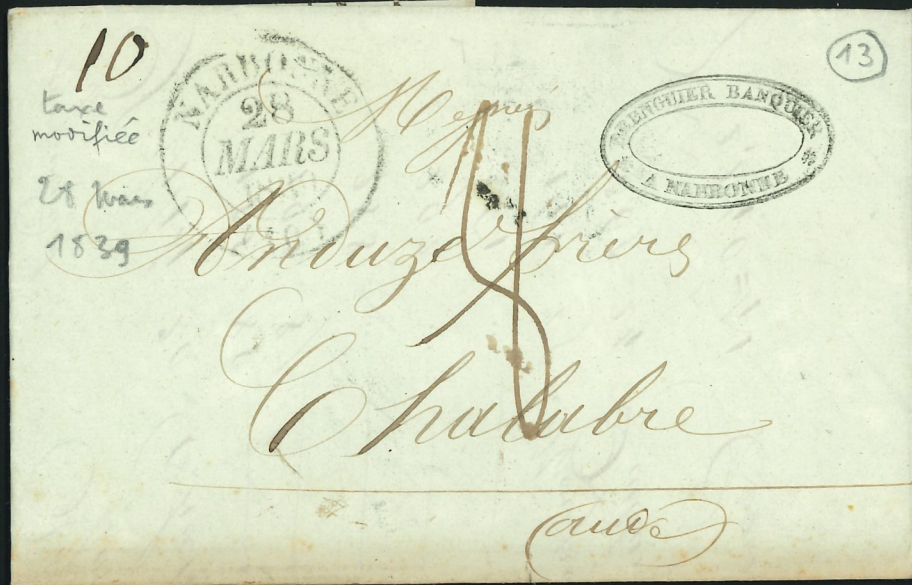 10
13
taxe
modifiée
28 Mars
1839
NARBONNE
28
MARS
BERENGUIER BANQUIER
A NARBONNE
Anduze frères
Chalabre
(aude)